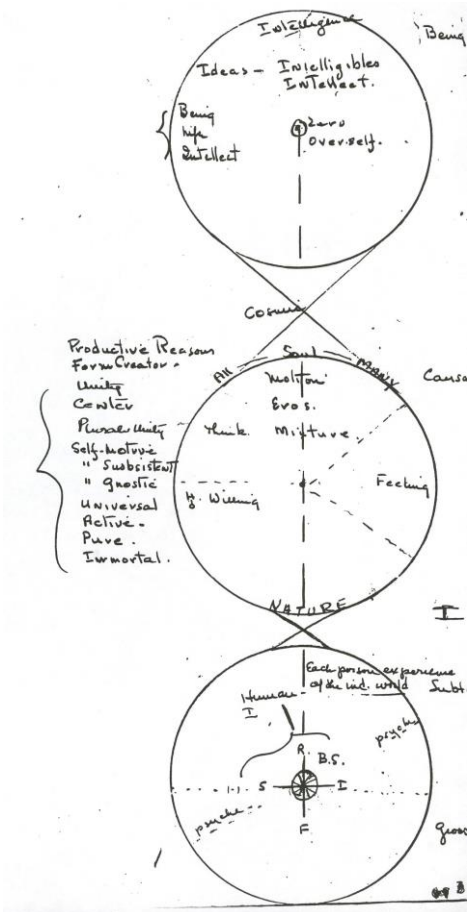 Intelligence
Being
Ideas — Intelligibles
Intellect.
Being
Life
Intellect
Zero
Overself.
Cosmic
Productive Reasons
Form Creator.
Unity
Center
Plural Unity
Self-Motive
" Subsistent
" gnostic
Universal
Active.
Pure.
Immortal.
All Soul Many
Causa
Motion
Eros.
Mixture
Think
Willing
Feeling
NATURE
I
Each person experience
of the ind. world
Subt
Human
I
psyche
R.
B.S.
S
I
F
psyche
Gross